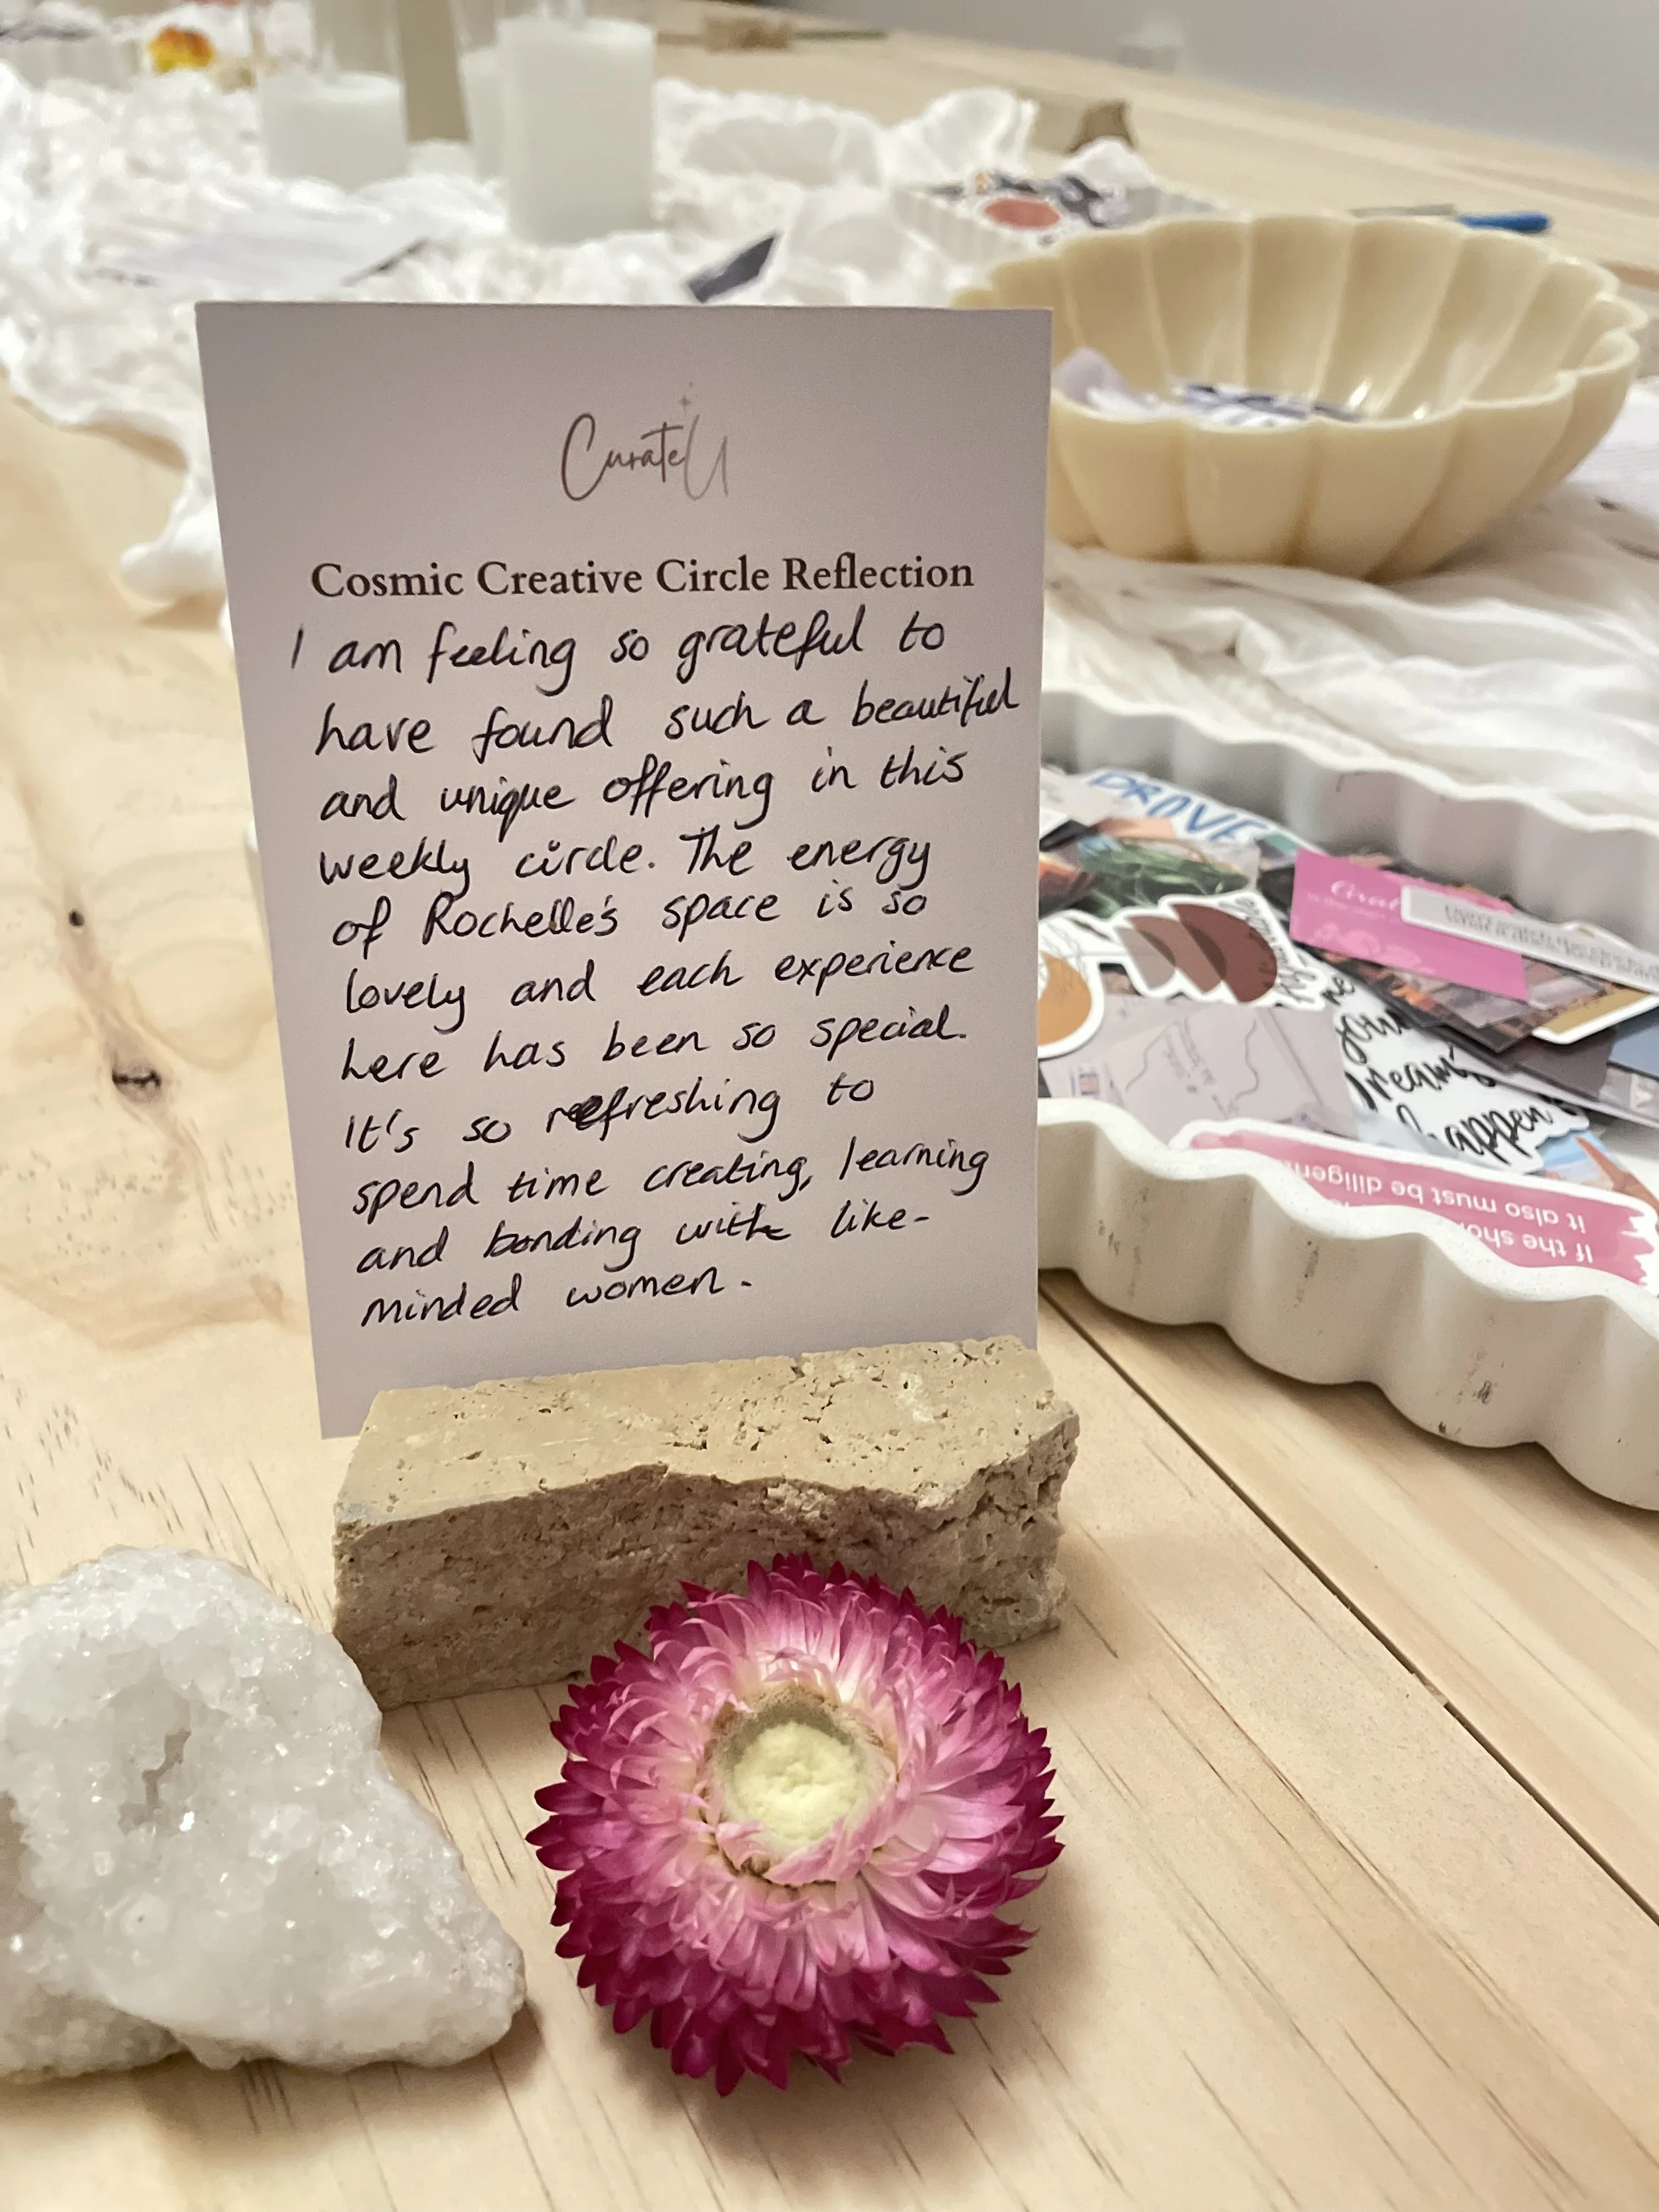 CurateU
Cosmic Creative Circle Reflection
I am feeling so grateful to
have found such a beautiful
and unique offering in this
weekly circle. The energy
of Rochelle's space is so
lovely and each experience
here has been so special.
It's so refreshing to
spend time creating, learning
and bonding with like-
minded women.
PROVE
your
dreams
happen
If the
it also must be